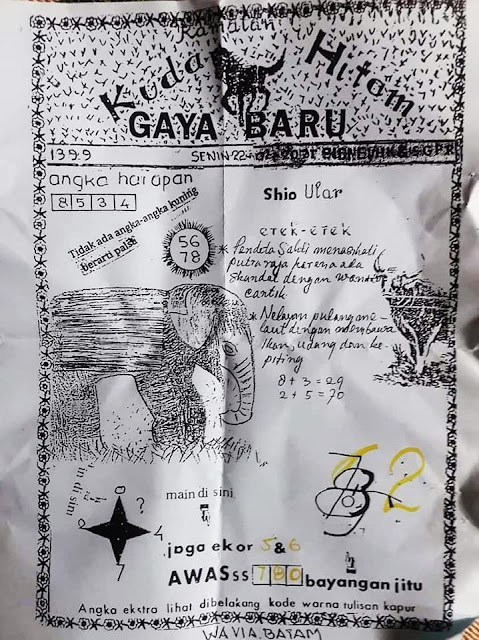 Ramalan
Kuda Hitam
GAYA BARU
1399
SENIN 22
angka harapan
8534
Tidak ada angka-angka kuning
berarti palsu
56
78
Shio Ular
erek-erek
* Pendeta Sakti menasehati
putra raja karena ada
skandal dengan wanita
cantik
* Nelayan pulang me-
laut dengan membawa
ikan, udang dan ke-
piting
8+3=29
2+5=70
in di sini
0
?
4
7
main di sini
2
jaga ekor 5&6
AWASss 780 bayangan jitu
Angka ekstra lihat dibelakang kode warna tulisan kapur
WAVIA BATAM